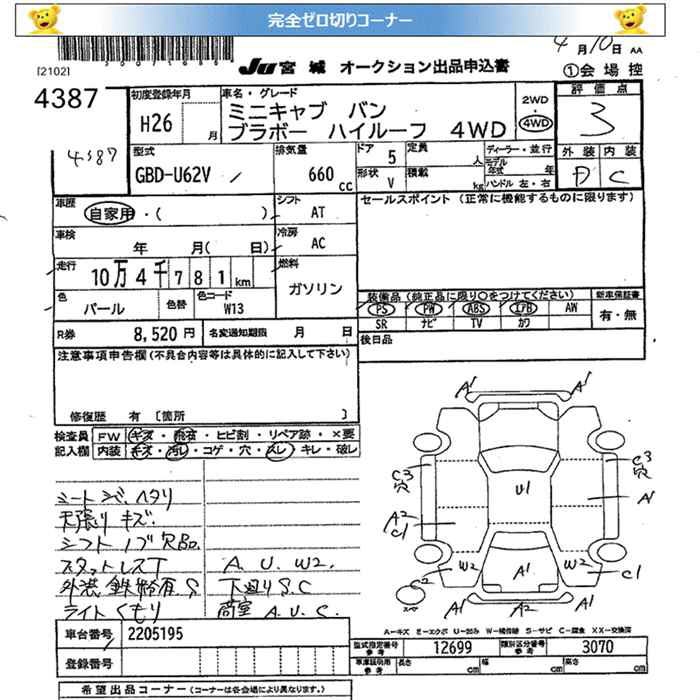 完全ゼロ切りコーナー
4月10日 AA
[2102]
JU宮城 オークション出品申込書
①会場控
4387
初度登録年月
H26 月
車名・グレード
ミニキャブ バン
ブラボー ハイルーフ 4WD
2WD
4WD
評価点
3
外装 内装
D C
4387
型式
GBD-U62V
排気量
660 cc
ドア 5
形状 V
定員 人
積載 kg
ディーラー・並行
モデル年式 年
ハンドル 左・右
車歴
自家用・( )
シフト
AT
セールスポイント (正常に機能するものに限ります)
車検
年 月( 日)
冷房
AC
走行
10万4千781km
燃料
ガソリン
色
パール
色替
色コード
W13
装備品(純正品に限り○をつけてください)
新車保証書
PS PW ABS エアB AW
有・無
SR ナビ TV カワ
R券 8,520円
名変通知期限 月 日
後日品
注意事項申告欄(不具合内容等は具体的に記入して下さい)
修復歴 有 [箇所 ]
検査員 FW キズ・飛石・ヒビ割・リペア跡・×要
記入欄 内装 キズ・汚レ・コゲ・穴・スレ・キレ・破レ
シートシワ、ヘタリ
天張りキズ.
シフトノブ欠品.
スタットレスT A.U.W2.
外装鉄粉有.S 下廻りS.C
ライトくもり 荷室A.U.C.
A1 A1
C3 穴 C3 穴
U1
A1
A2
C1
W2 W2 C1
C2
A1
A1 A1
A-キズ E-エクボ U-凹み W-補修跡 S-サビ C-腐食 XX-交換済
車台番号 2205195
登録番号
型式指定番号 参考 12699
類別区分番号 参考 3070
車庫証明用 参考 長さ cm 幅 cm 高さ cm
希望出品コーナー(コーナーは各会場により異なります。)